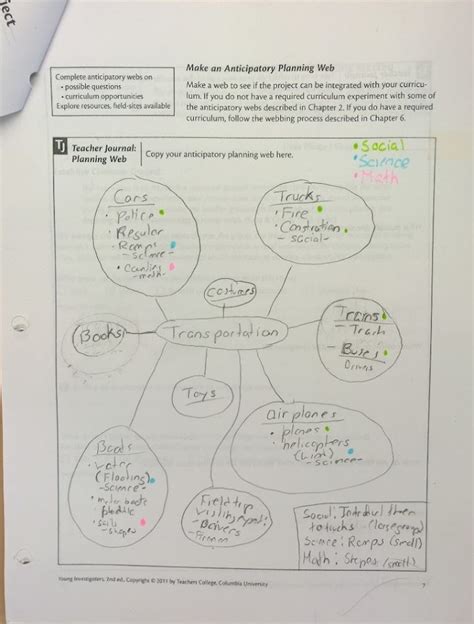 ject
Make an Anticipatory Planning Web
Complete anticipatory webs on
• possible questions
• curriculum opportunities
Explore resources, field-sites available
Make a web to see if the project can be integrated with your curricu-
lum. If you do not have a required curriculum experiment with some of
the anticipatory webs described in Chapter 2. If you do have a required
curriculum, follow the webbing process described in Chapter 6.
TJ Teacher Journal:
Planning Web
Copy your anticipatory planning web here.
• Social
• Science
• Math
Cars
• Police
• Regular
• Ramps
- science -
• Counting
- math -
Trucks
• Fire
• Constration
- social -
Costumes
Books
Transportation
Trains
- Track
- Buses
Drivers
Toys
Airplanes
• planes
• helicopters
(wind)
- science -
Boats
• water
(Floating)
- Science -
• motor boats
• sails
- shapes
Field trip
- Drivers
- Fireman
Social:
to trucks - (large group)
Science: Ramps (small)
Math: Shapes (small)
Young Investigators, 2nd ed., Copyright © 2011 by Teachers College, Columbia University
7